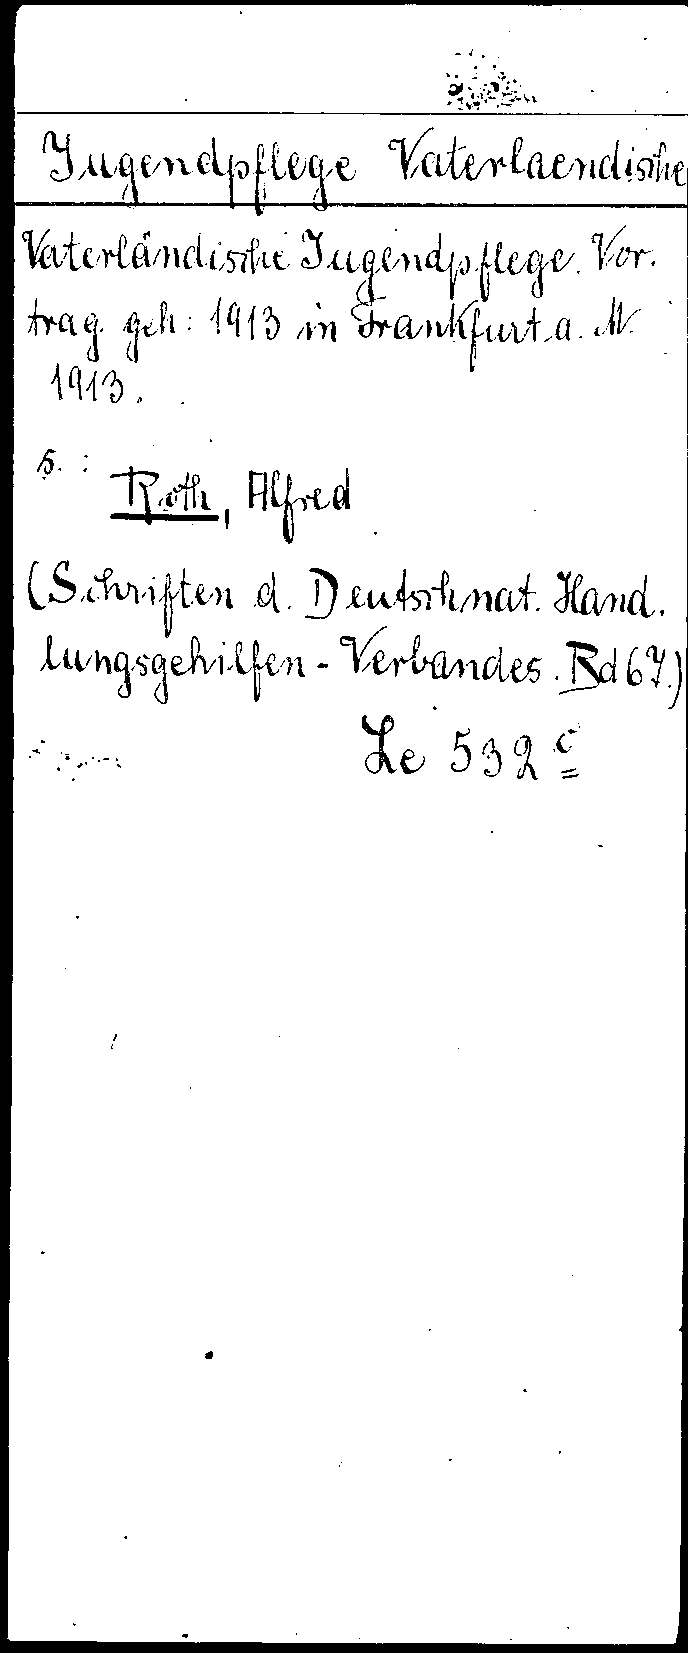 Jugendpflege Vaterlaendische
Vaterländische Jugendpflege. Vor.
trag. geh: 1913 in Frankfurt a. M.
1913.
s. :
Roth, Alfred
(Schriften d. Deutschnat. Hand.
lungsgehilfen-Verbandes. Bd 67.)
Le 532 c